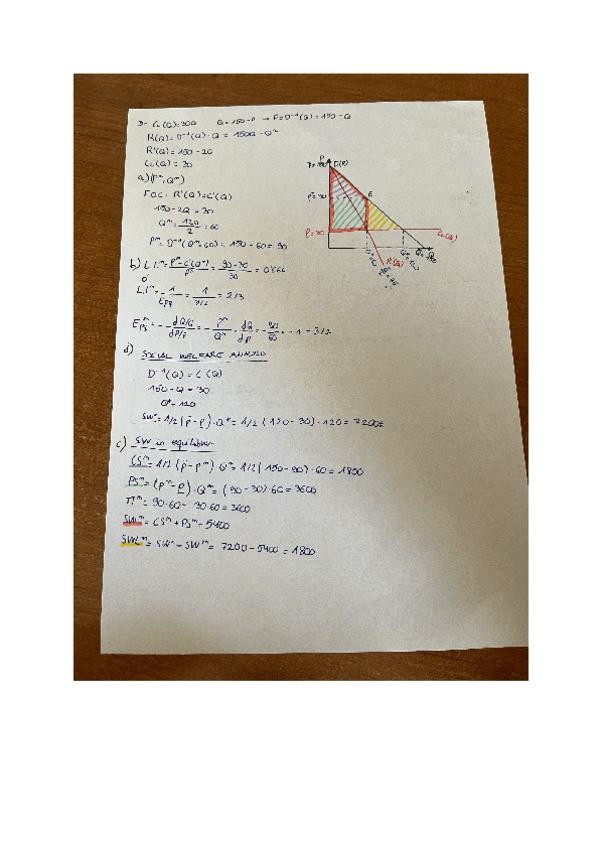 3- C(Q)=30Q Q=150-P → P=D⁻¹(Q)=150-Q
R(Q)=D⁻¹(Q)·Q = 150Q-Q²
R'(Q)=150-2Q
C'(Q)=30
a) (Pᵐ, Qᵐ)
F.O.C: R'(Q)=C'(Q)
150-2Q=30
Qᵐ=120/2=60
Pᵐ=D⁻¹(Qᵐ=60)=150-60=90
b) L.Iᵐ=Pᵐ-C'(Qᵐ)/Pᵐ=90-30/30=0'666
o'
L.Iᵐ=1/|EPQ|=1/3/2=2/3
EPQᵐ=-dQ/Q/dP/P=-Pᵐ/Qᵐ·dQ/dP=-90/60·-1=3/2
d) SOCIAL WELFARE MÁXIMO
D⁻¹(Q)=C'(Q)
150-Q=30
Q*=120
SW*=1/2(P̄-P)·Q*=1/2(150-30)·120=7200
c) SW in equilibrium
CSᵐ=1/2(P̄-Pᵐ)·Qᵐ=1/2(150-90)·60=1800
PSᵐ=(Pᵐ-P)·Qᵐ=(90-30)60=3600
Πᵐ=90·60-30·60=3600
SWᵐ=CSᵐ+PSᵐ=5400
SWLᵐ=SW*-SWᵐ=7200-5400=1800
P
E
Pᵐ=90
P=30
C'(Q)
R'(Q)